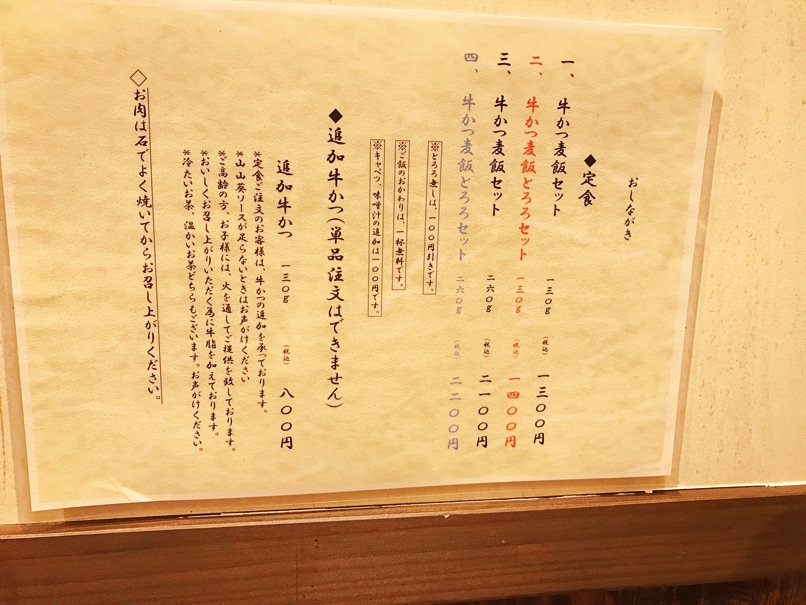 おしながき
◆定食
一、牛かつ麦飯セット 一三〇g (税込) 一三〇〇円
二、牛かつ麦飯とろろセット 一三〇g (税込) 一四〇〇円
三、牛かつ麦飯セット 二六〇g (税込) 二一〇〇円
四、牛かつ麦飯とろろセット 二六〇g (税込) 二二〇〇円
※とろろ無しは、一〇〇円引きです。
※ご飯のおかわりは、一杯無料です。
※キャベツ、味噌汁の追加は一〇〇円です。
◆追加牛かつ(単品注文はできません)
追加牛かつ 一三〇g (税込) 八〇〇円
*定食ご注文のお客様は、牛かつの追加を承っております。
*山山葵ソースが足らないときはお声がけください
*ご高齢の方、お子様には、火を通してご提供を致しております。
*おいしくお召し上がりいただく為に牛脂を加えております。
*冷たいお茶、温かいお茶どちらもございます。お声がけください。
◇お肉は石でよく焼いてからお召し上がりください。